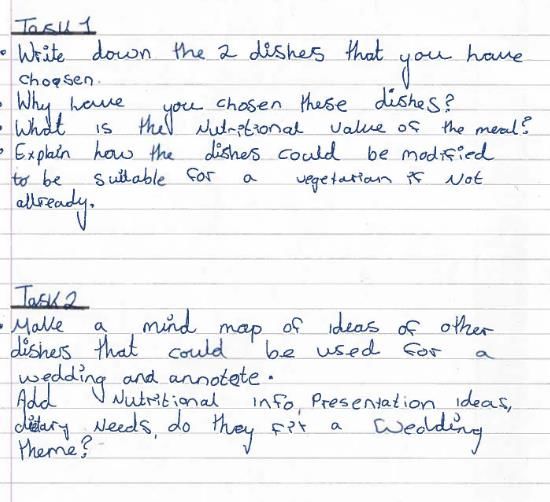 Task 1
• Write down the 2 dishes that you have
choosen.
• Why have you chosen these dishes?
• What is the Nutritional value of the meal?
• Explain how the dishes could be modified
to be suitable for a vegetarian if Not
allready.
Task 2
• Make a mind map of ideas of other
dishes that could be used for a
wedding and annotate.
Add Nutritional info, Presentation ideas,
dietary Needs, do they fit a Wedding
theme?